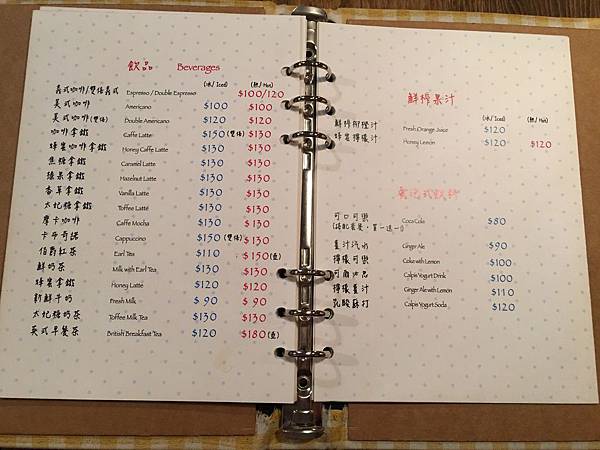 飲品 Beverages
(冰/ Iced) (熱/ Hot)
義式咖啡/雙倍義式 Espresso / Double Espresso $100/120
美式咖啡 Americano $100 $100
美式咖啡(雙倍) Double Americano $120 $120
咖啡拿鐵 Caffe Latte $150(雙倍) $130
蜂蜜拿鐵 Honey Caffe Latte $130 $130
焦糖拿鐵 Caramel Latte $130 $130
榛果拿鐵 Hazelnut Latte $130 $130
香草拿鐵 Vanilla Latte $130 $130
太妃糖拿鐵 Toffee Latte $130 $130
摩卡咖啡 Caffe Mocha $130 $130
卡布奇諾 Cappuccino $150(雙倍) $130
伯爵紅茶 Earl Tea $110 $150(壺)
鮮奶茶 Milk with Earl Tea $130 $130
蜂蜜拿鐵 Honey Latte $120 $120
新鮮牛奶 Fresh Milk $ 90 $ 90
太妃糖奶茶 Toffee Milk Tea $130 $130
英式早餐茶 British Breakfast Tea $120 $180(壺)
鮮榨果汁
(冰/ Iced) (熱/ Hot)
鮮榨柳橙汁 Fresh Orange Juice $120
蜂蜜檸檬汁 Honey Lemon $120 $120
可口可樂 Coca Cola $80
(搭配套餐，買一送一)
薑汁汽水 Ginger Ale $90
檸檬可樂 Coke with Lemon $100
可爾必思 Calpis Yogurt Drink $100
檸檬薑汁 Ginger Ale with Lemon $110
乳酸蘇打 Calpis Yogurt Soda $120